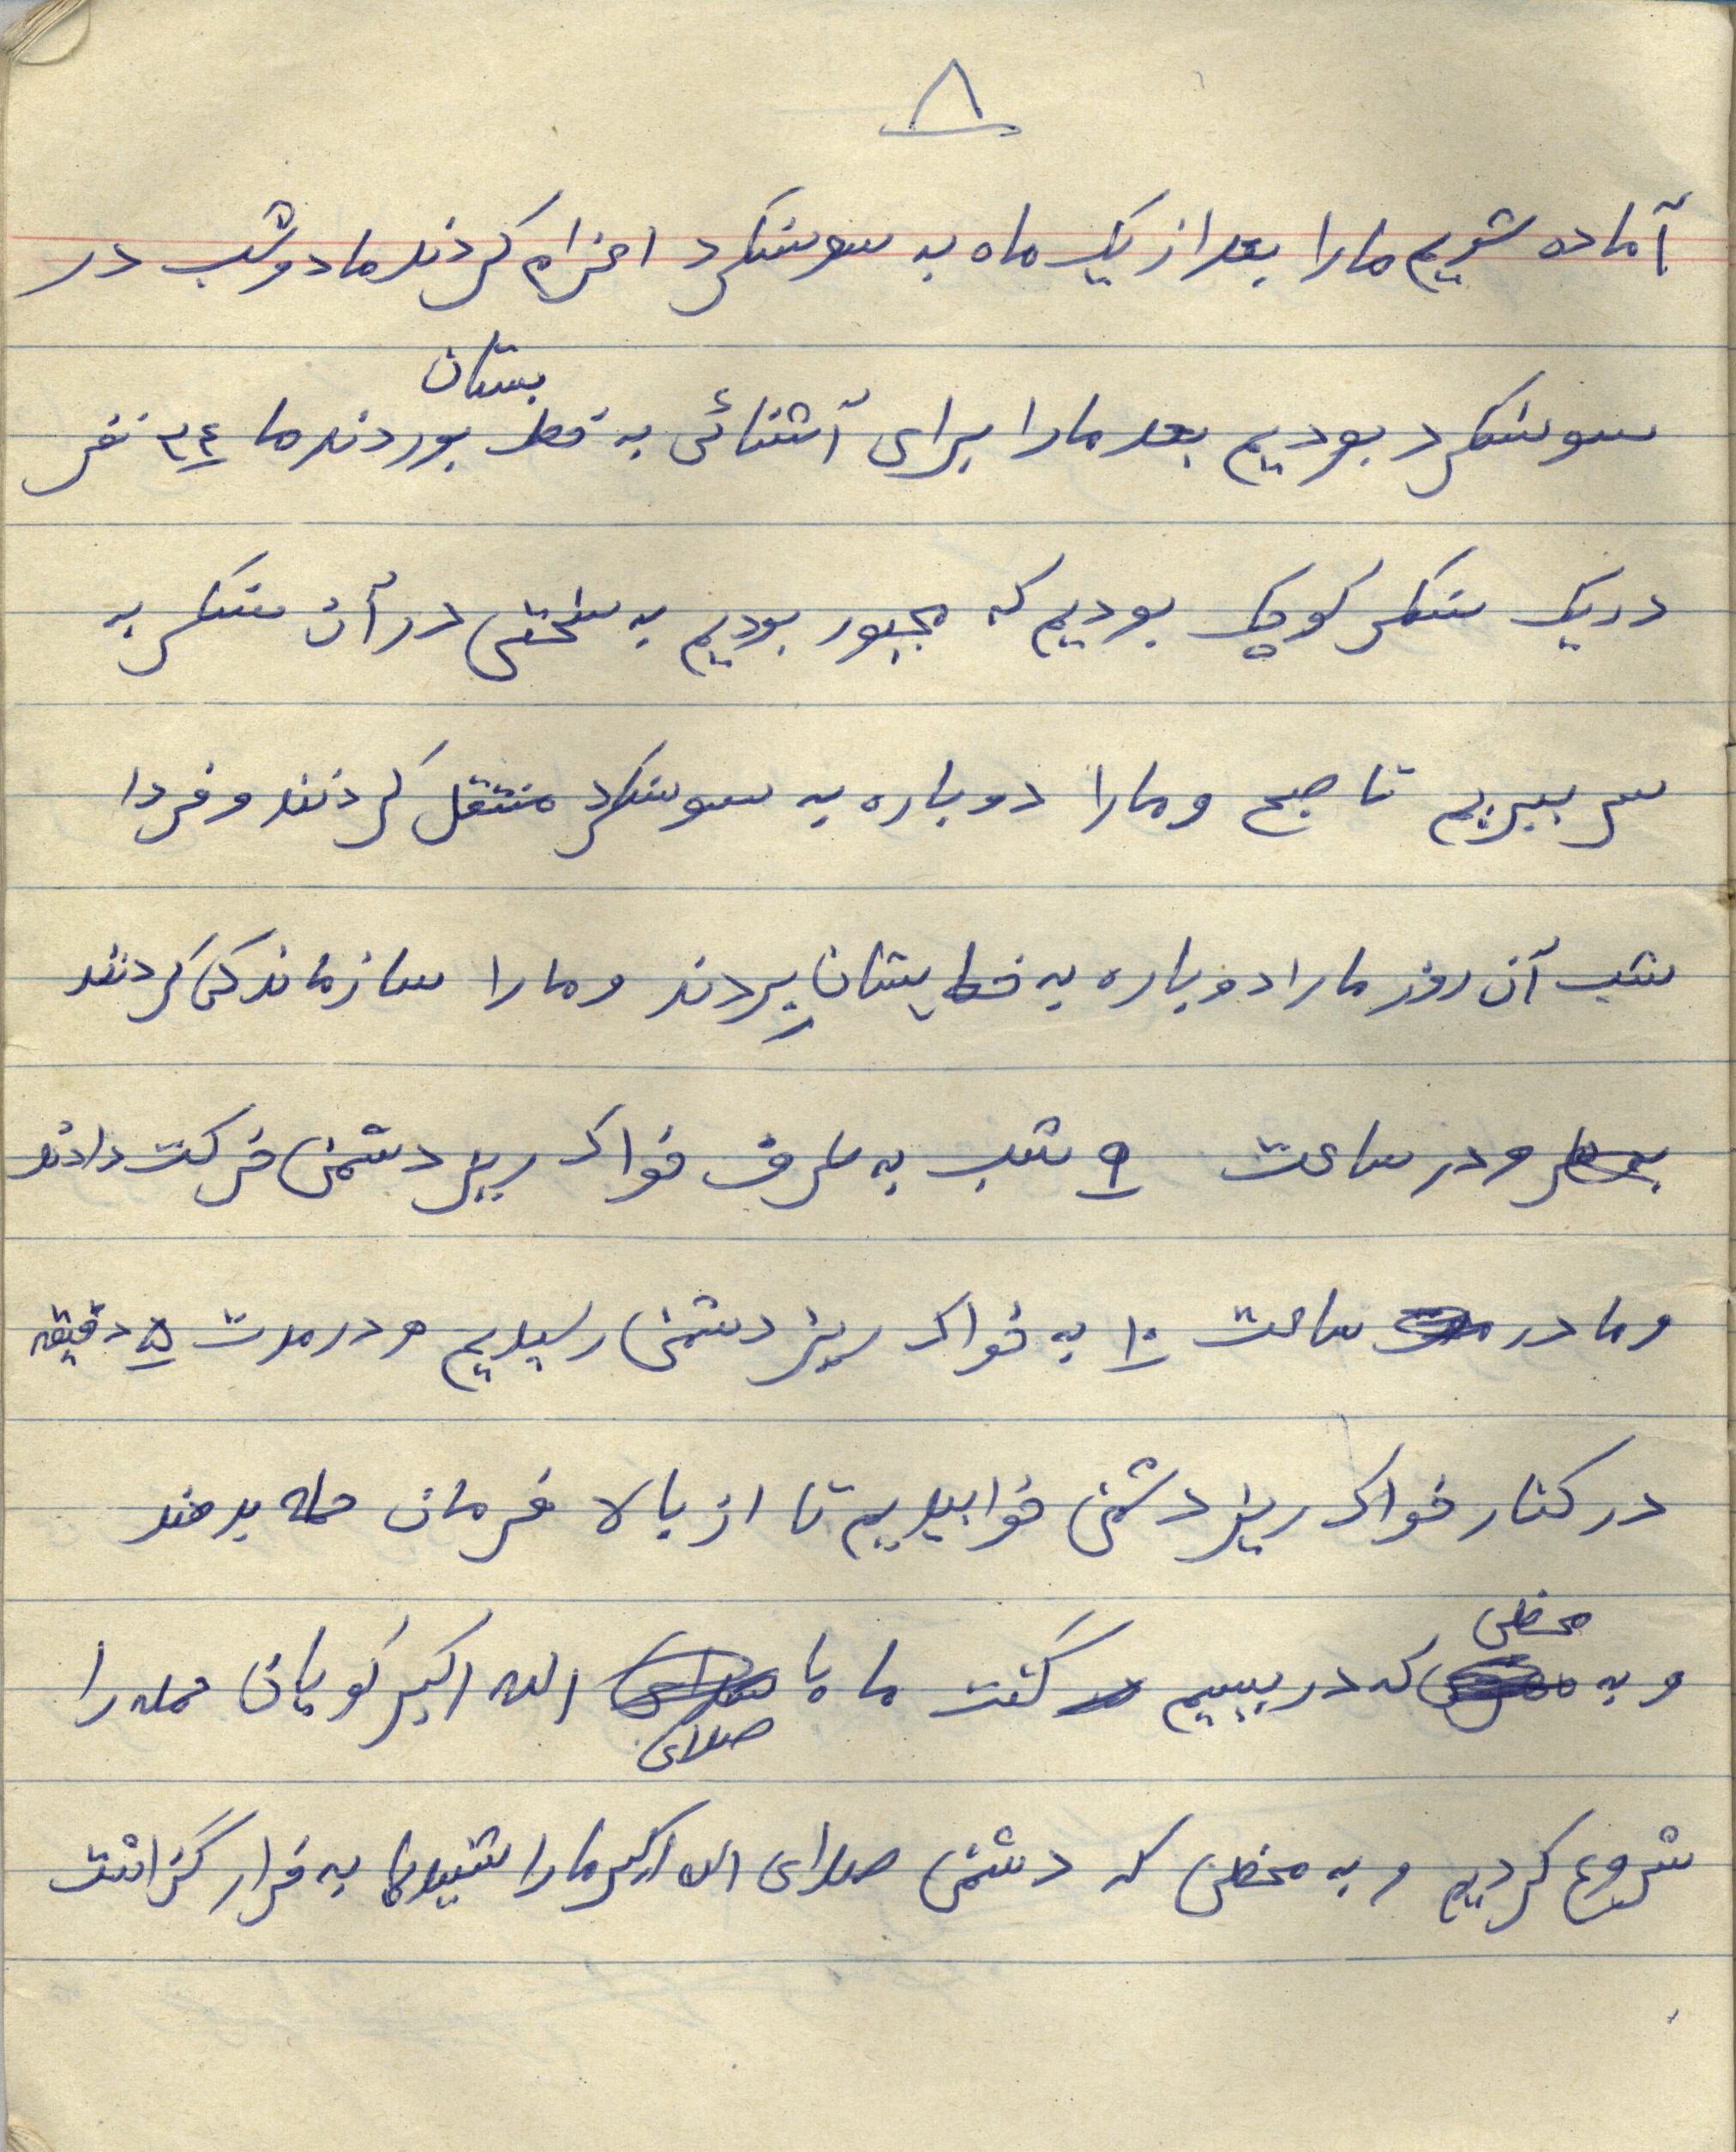 ۸
آماده شویم ما را بعد از یک ماه به سوسنگرد اعزام کردند ما دو شب در
بستان
سوسنگرد بودیم بعد ما را برای آشنائی به خط بوردند ما ۳۴ نفر
در یک سنگر کوچک بودیم که مجبور بودیم به سختی در آن سنگر به
سر ببریم تا صبح و ما را دوباره به سوسنگرد منتقل کردنند و فردا
شب آن روز ما را دوباره به خط بستان بردند و ما را سازماندکی کردنند
و در ساعت ۹ شب به طرف خواک ریز دشمن حرکت دادند
و ما در ساعت ۱۰ به خواک ریز دشمن رسیدیم و در مدت ۵ دقیقه
در کنار خواک ریز دشمن خوابیدیم تا از بالا فرمان حمله بدهند
محظی
و به که در بیسیم گفت ما با الله اکبر گویان حمله را
صدای
شروع کردیم و به محظی که دشمن صدای الله اکبر ما را شنید پا به فرار گزاشت